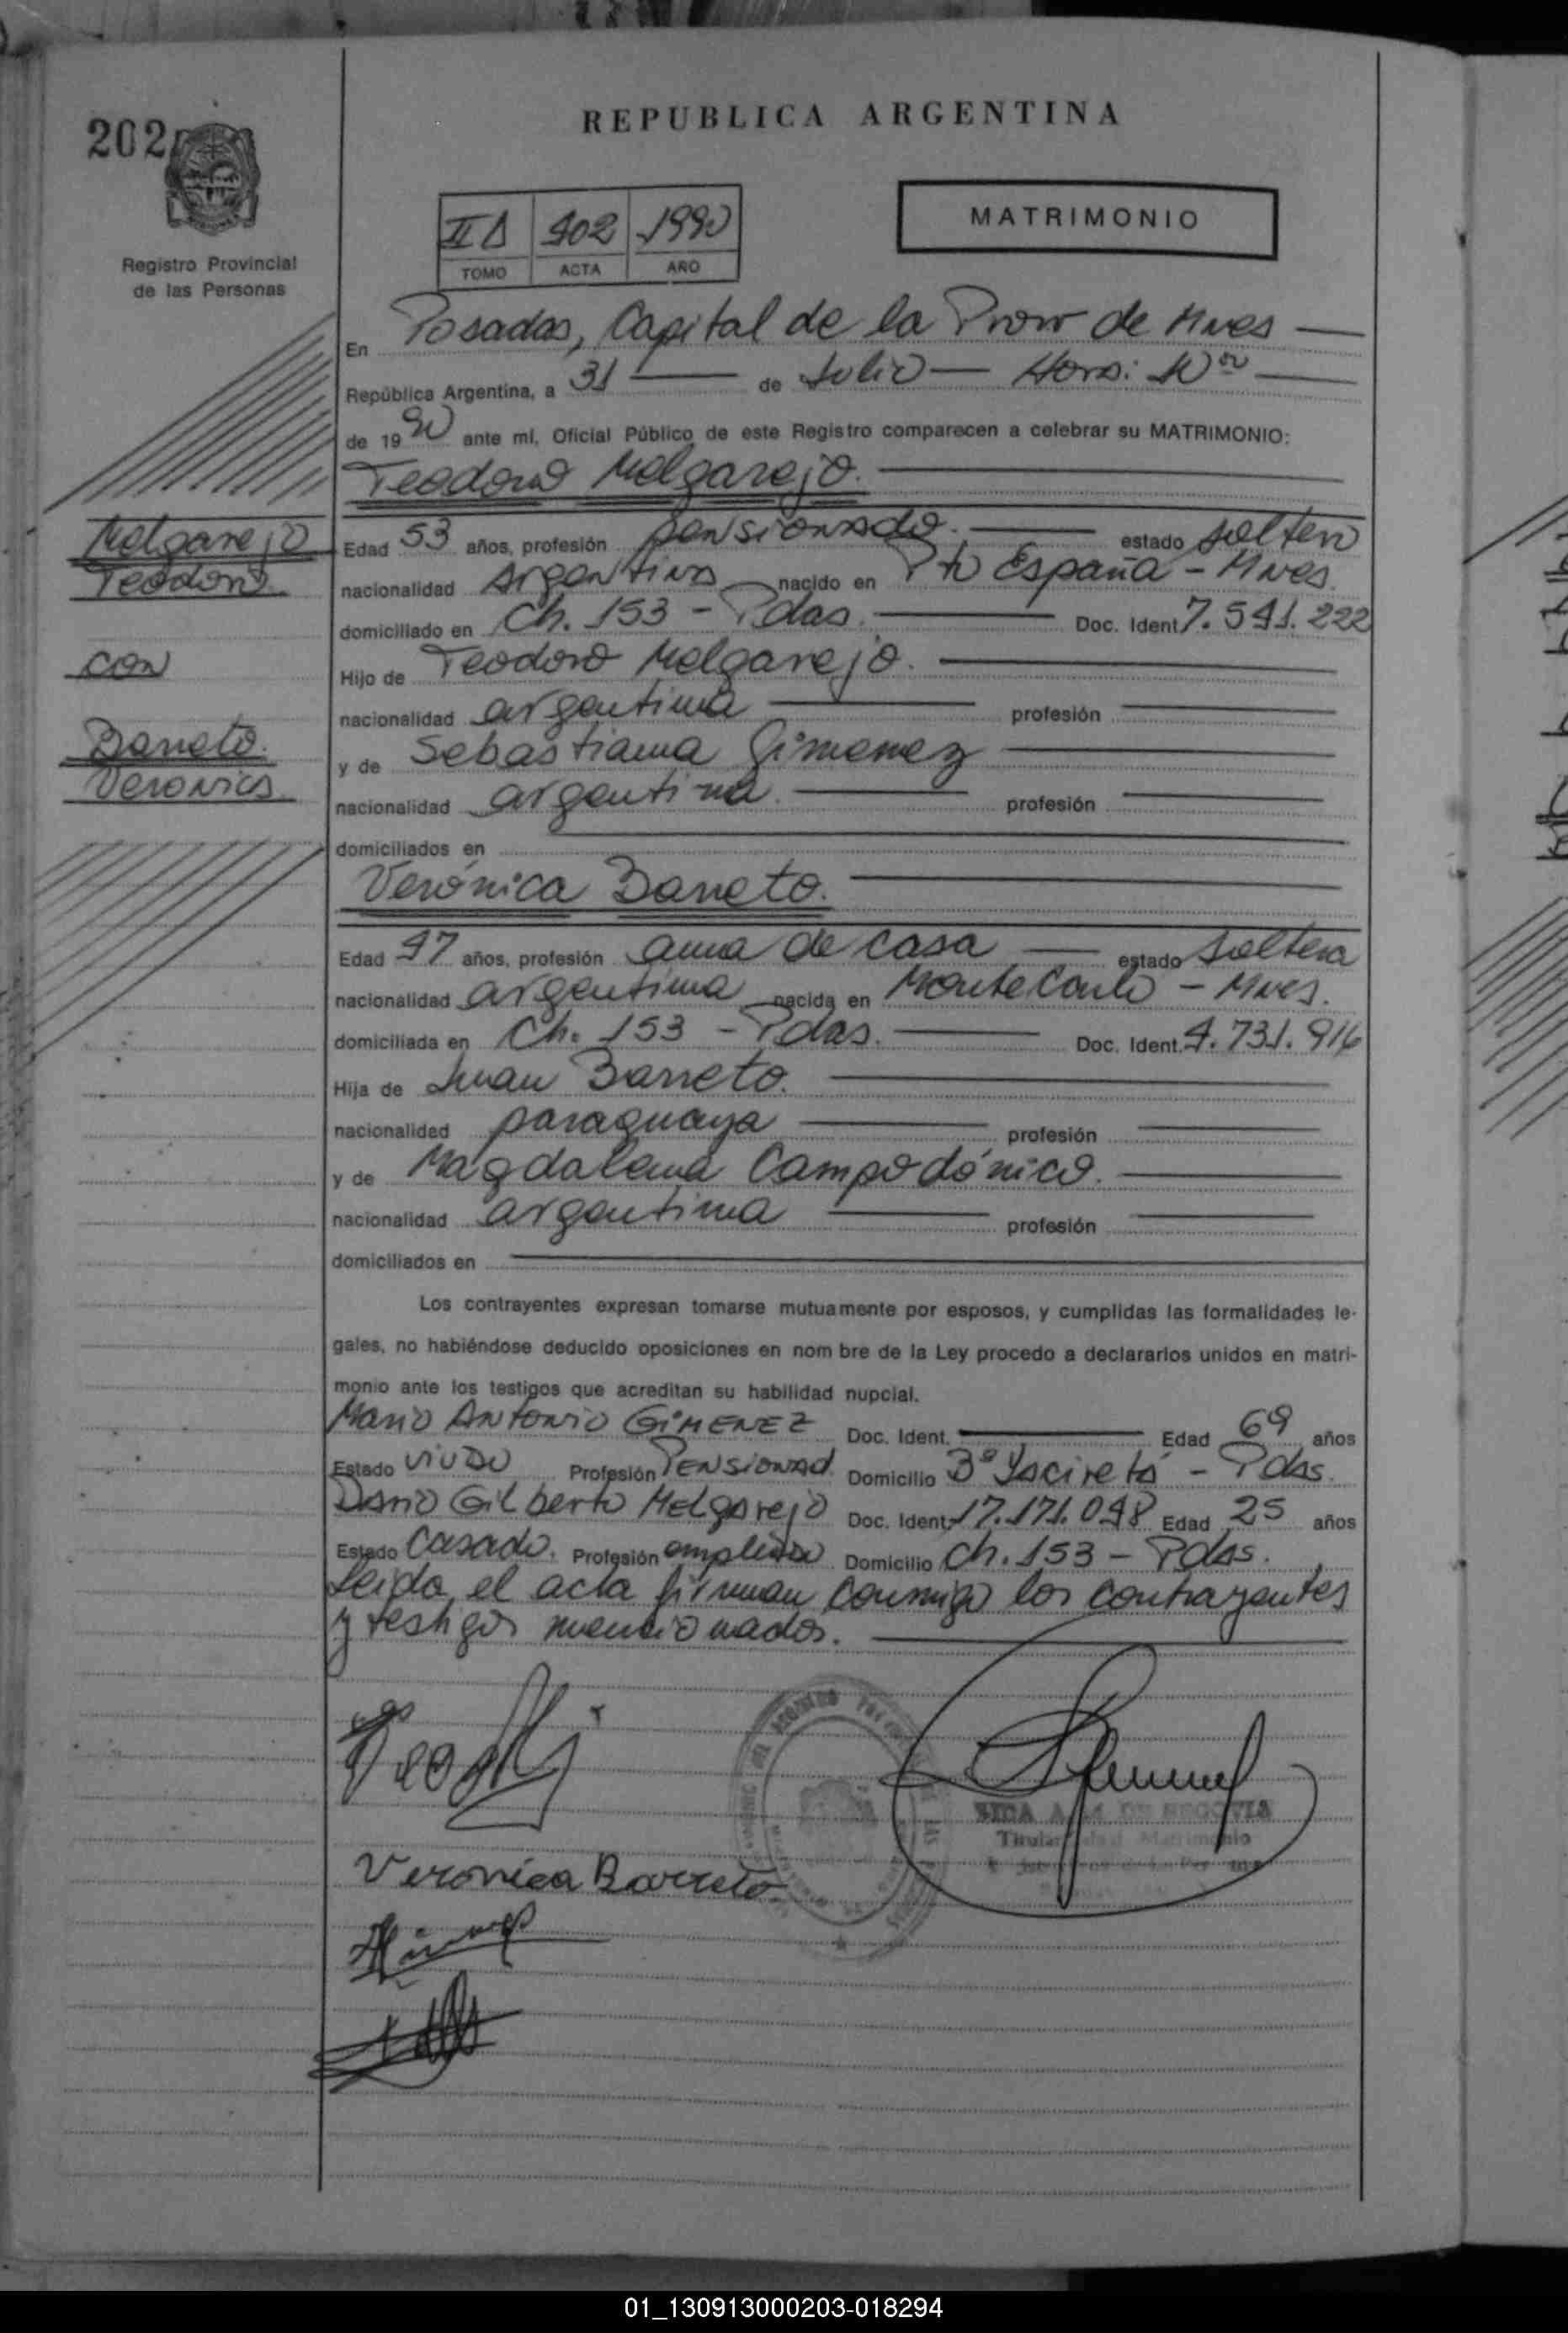 REPUBLICA ARGENTINA
202
Registro Provincial
de las Personas
MATRIMONIO
II Δ 402 1990
TOMO ACTA AÑO
En Posadas, Capital de la Prov de Mnes
República Argentina, a 31 de Julio Hora: 10 00
de 1990 ante mí, Oficial Público de este Registro comparecen a celebrar su MATRIMONIO:
Teodoro Melgarejo.
Melgarejo
Teodoro
con
Barreto.
Veronica
Edad 53 años, profesión pensionado. estado soltero
nacionalidad Argentina nacido en Pto España - Mnes.
domiciliado en Ch. 153 - Pdas. Doc. Ident. 7.541.222
Hijo de Teodoro Melgarejo.
nacionalidad argentina profesión
y de Sebastiana Gimenez
nacionalidad argentina. profesión
domiciliados en
Verónica Barreto.
Edad 47 años, profesión ama de casa estado soltera
nacionalidad argentina nacida en Monte Carlo - Mnes.
domiciliada en Ch. 153 - Pdas. Doc. Ident. 4.731.916
Hija de Juan Barreto.
nacionalidad paraguaya profesión
y de Magdalena Campodónico.
nacionalidad argentina profesión
domiciliados en
Los contrayentes expresan tomarse mutuamente por esposos, y cumplidas las formalidades le-
gales, no habiéndose deducido oposiciones en nom bre de la Ley procedo a declararlos unidos en matri-
monio ante los testigos que acreditan su habilidad nupcial.
Mario Antonio GiMENEZ Doc. Ident. Edad 69 años
Estado Viudo Profesión Pensionad. Domicilio 3º Yaciretá - Pdas.
Dario Gilberto Melgarejo Doc. Ident. 17.171.048 Edad 25 años
Estado Casado. Profesión empleado Domicilio Ch. 153 - Pdas.
Leida el acta firman conmigo los contrayentes
y testigos mencionados.
Veronica Barreto
DE SEGOVIA
Titular Matrimonio
01_130913000203-018294